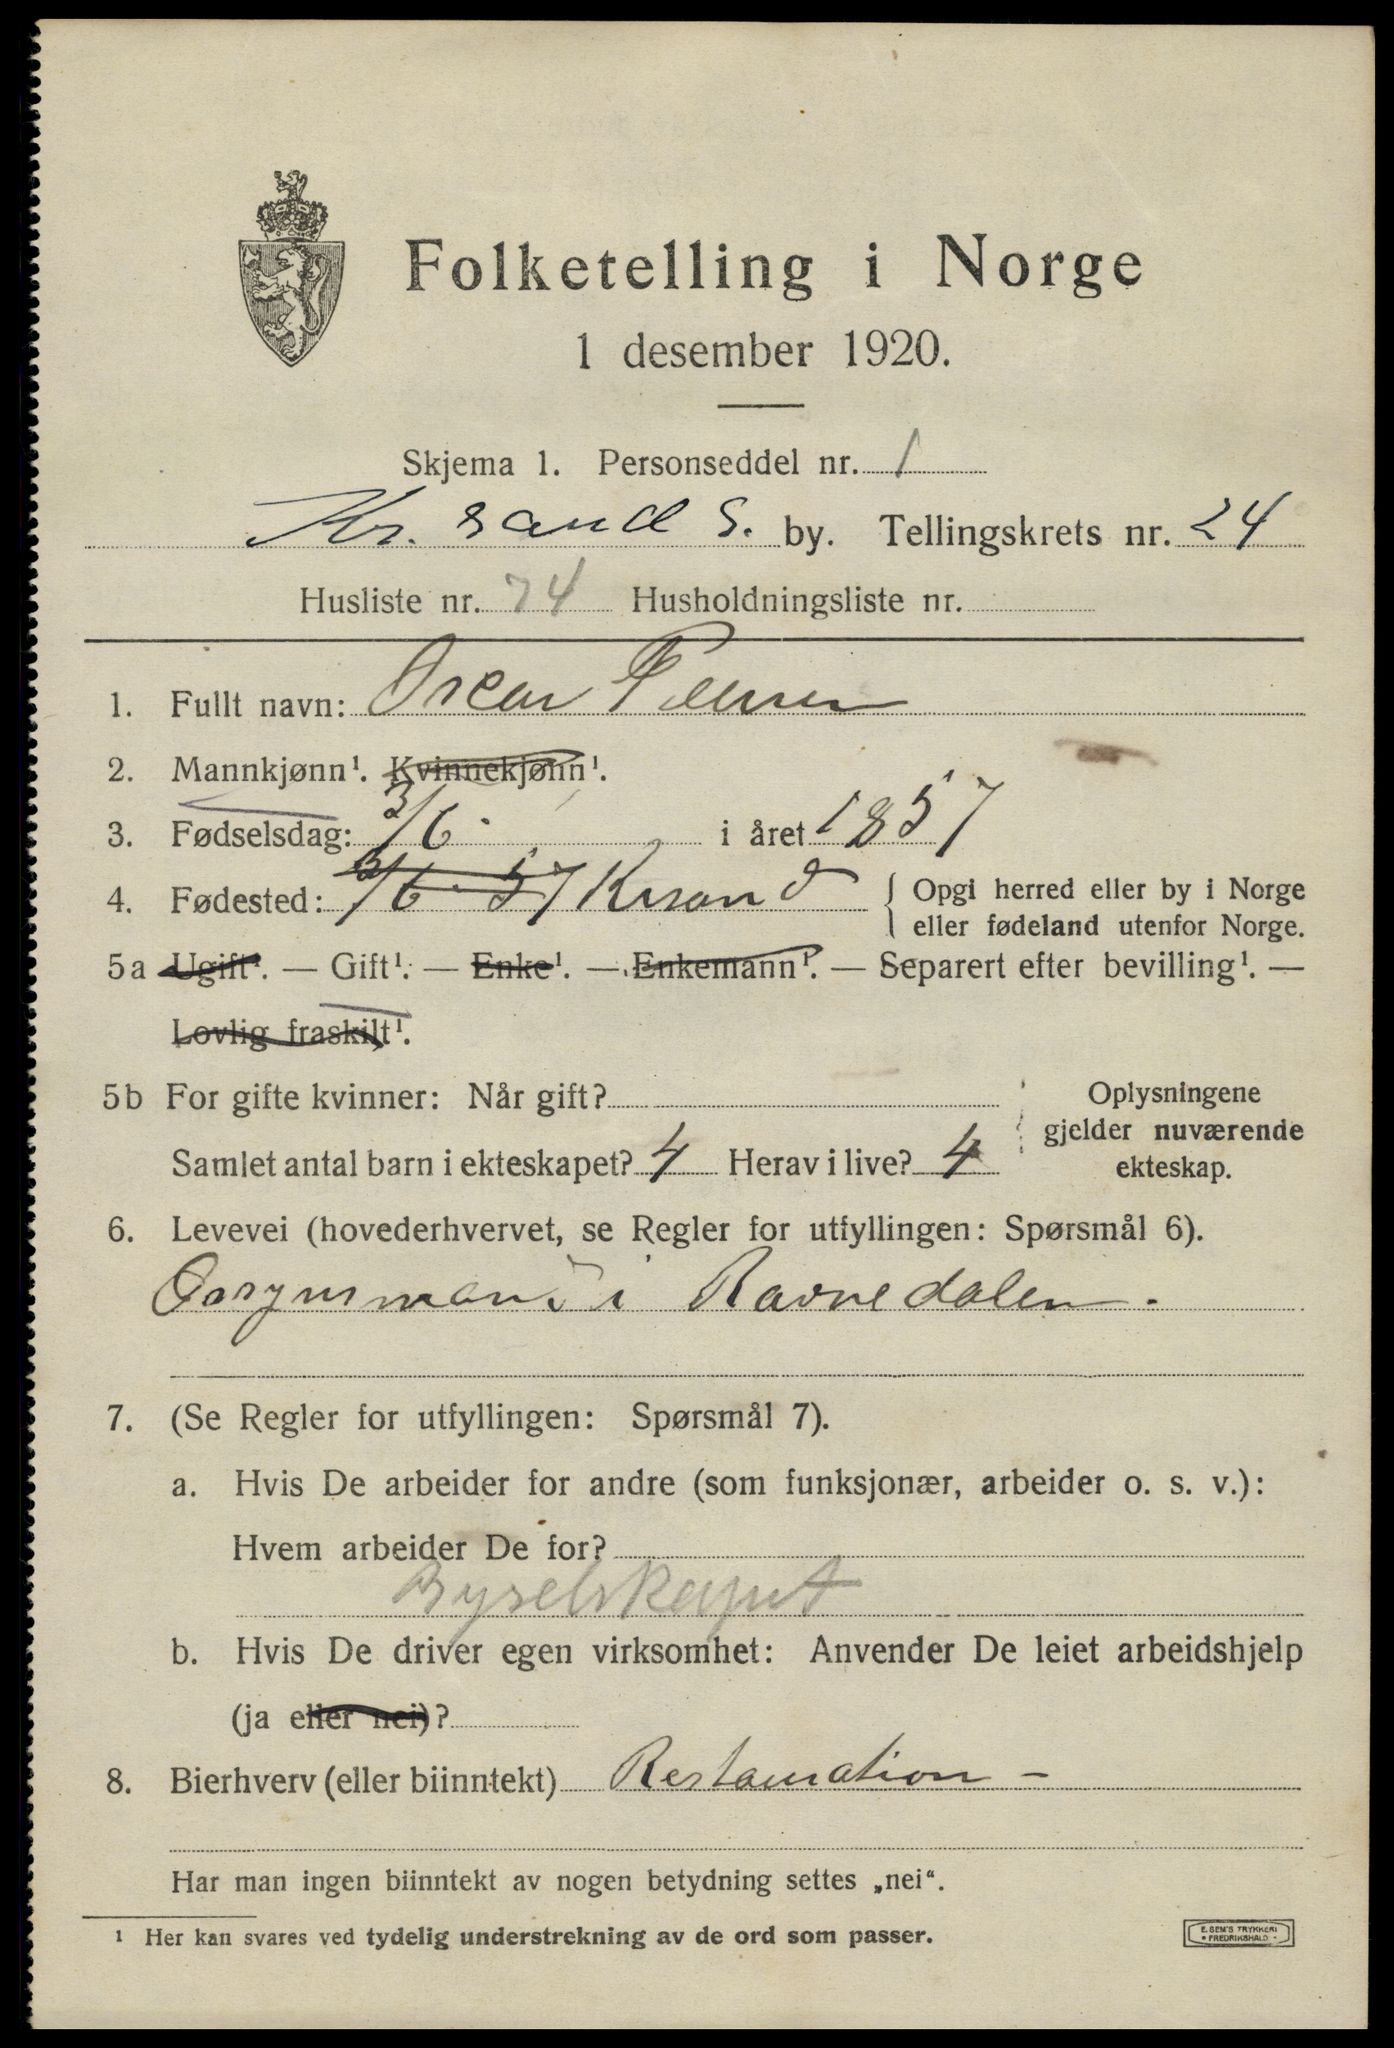 Folketelling i Norge
1 desember 1920.
Skjema 1. Personseddel nr. 1
Kr. sand S. by. Tellingskrets nr. 24
Husliste nr. 74 Husholdningsliste nr.
1. Fullt navn: Oscar
2. Mannkjønn¹. Kvinnekjønn¹.
3. Fødselsdag: 3/6. i året 1857
4. Fødested: 3/6 57 Krsand { Opgi herred eller by i Norge
eller fødeland utenfor Norge.
5a Ugift¹. — Gift¹. — Enke¹. — Enkemann¹. — Separert efter bevilling¹. —
Lovlig fraskilt¹.
5b For gifte kvinner: Når gift? Oplysningene
gjelder nuværende
Samlet antal barn i ekteskapet? 4 Herav i live? 4 ekteskap.
6. Levevei (hovederhvervet, se Regler for utfyllingen: Spørsmål 6).
Opsynsmand i Ravnedalen.
7. (Se Regler for utfyllingen: Spørsmål 7).
a. Hvis De arbeider for andre (som funksjonær, arbeider o. s. v.):
Hvem arbeider De for?
Byselskapet
b. Hvis De driver egen virksomhet: Anvender De leiet arbeidshjelp
(ja eller nei)?
8. Bierhverv (eller biinntekt) Restauration –
Har man ingen biinntekt av nogen betydning settes „nei“.
¹ Her kan svares ved tydelig understrekning av de ord som passer.
E. SEM'S TRYKKERI
• FREDRIKSHALD •